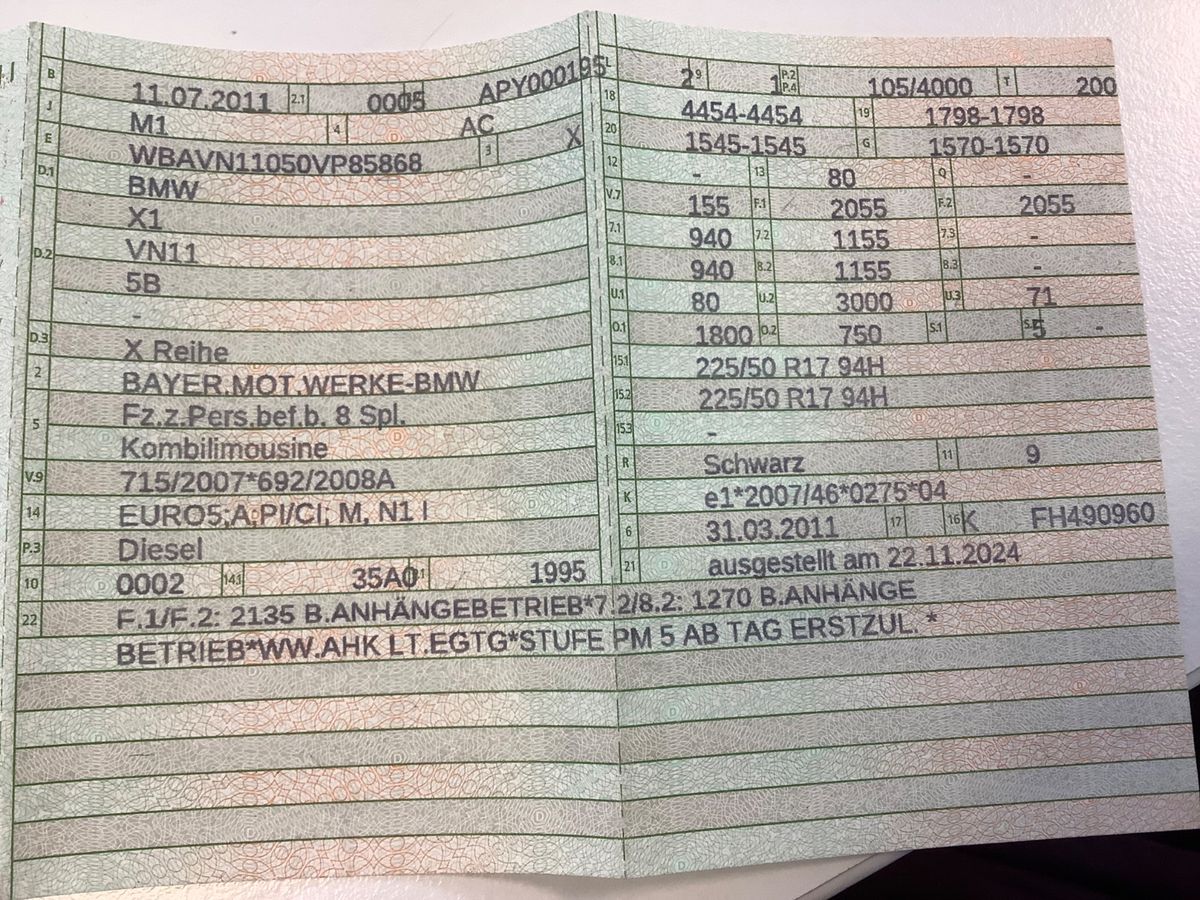 B 11.07.2011 2.1 0005 APY000195
J M1 4 AC
E WBAVN11050VP85868 3 X
D.1 BMW
X1
D.2 VN11
5B
-
D.3 X Reihe
2 BAYER.MOT.WERKE-BMW
5 Fz.z.Pers.bef.b. 8 Spl.
Kombilimousine
V.9 715/2007*692/2008A
14 EURO5;A;PI/CI; M, N1 I
P.3 Diesel
10 0002 14.1 35A0 P.1 1995
L 2 9 1 P.2 P.4 105/4000 T 200
18 4454-4454 19 1798-1798
20 1545-1545 G 1570-1570
12 - 13 80 Q -
V.7 155 F.1 2055 F.2 2055
7.1 940 7.2 1155 7.3 -
8.1 940 8.2 1155 8.3 -
U.1 80 U.2 3000 U.3 71
O.1 1800 O.2 750 S.1 5 S.2 -
15.1 225/50 R17 94H
15.2 225/50 R17 94H
15.3 -
R Schwarz 11 9
K e1*2007/46*0275*04
6 31.03.2011 17 K 16 FH490960
21 ausgestellt am 22.11.2024
22 F.1/F.2: 2135 B.ANHÄNGEBETRIEB*7.2/8.2: 1270 B.ANHÄNGE
BETRIEB*WW.AHK LT.EGTG*STUFE PM 5 AB TAG ERSTZUL. *